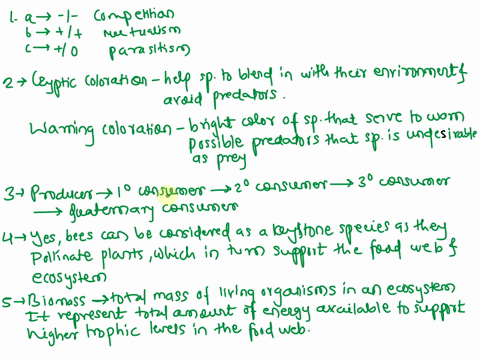 1. a → -/- Competition
b → +/+ mutualism
c → +/0 parasitism
2 → Cryptic coloration - help sp. to blend in with their environment &
avoid predators.
Warning coloration - bright color of sp. that serve to warn
possible predators that sp. is undesirable
as prey
3 → Producer → 1° consumer → 2° consumer → 3° consumer
→ quaternary consumer
4 → Yes, bees can be considered as a keystone species as they
Pollinate plants, which in turn support the food web &
ecosystem
5 → Biomass → total mass of living organisms in an ecosystem
It represent total amount of energy available to support
higher trophic levels in the food web.